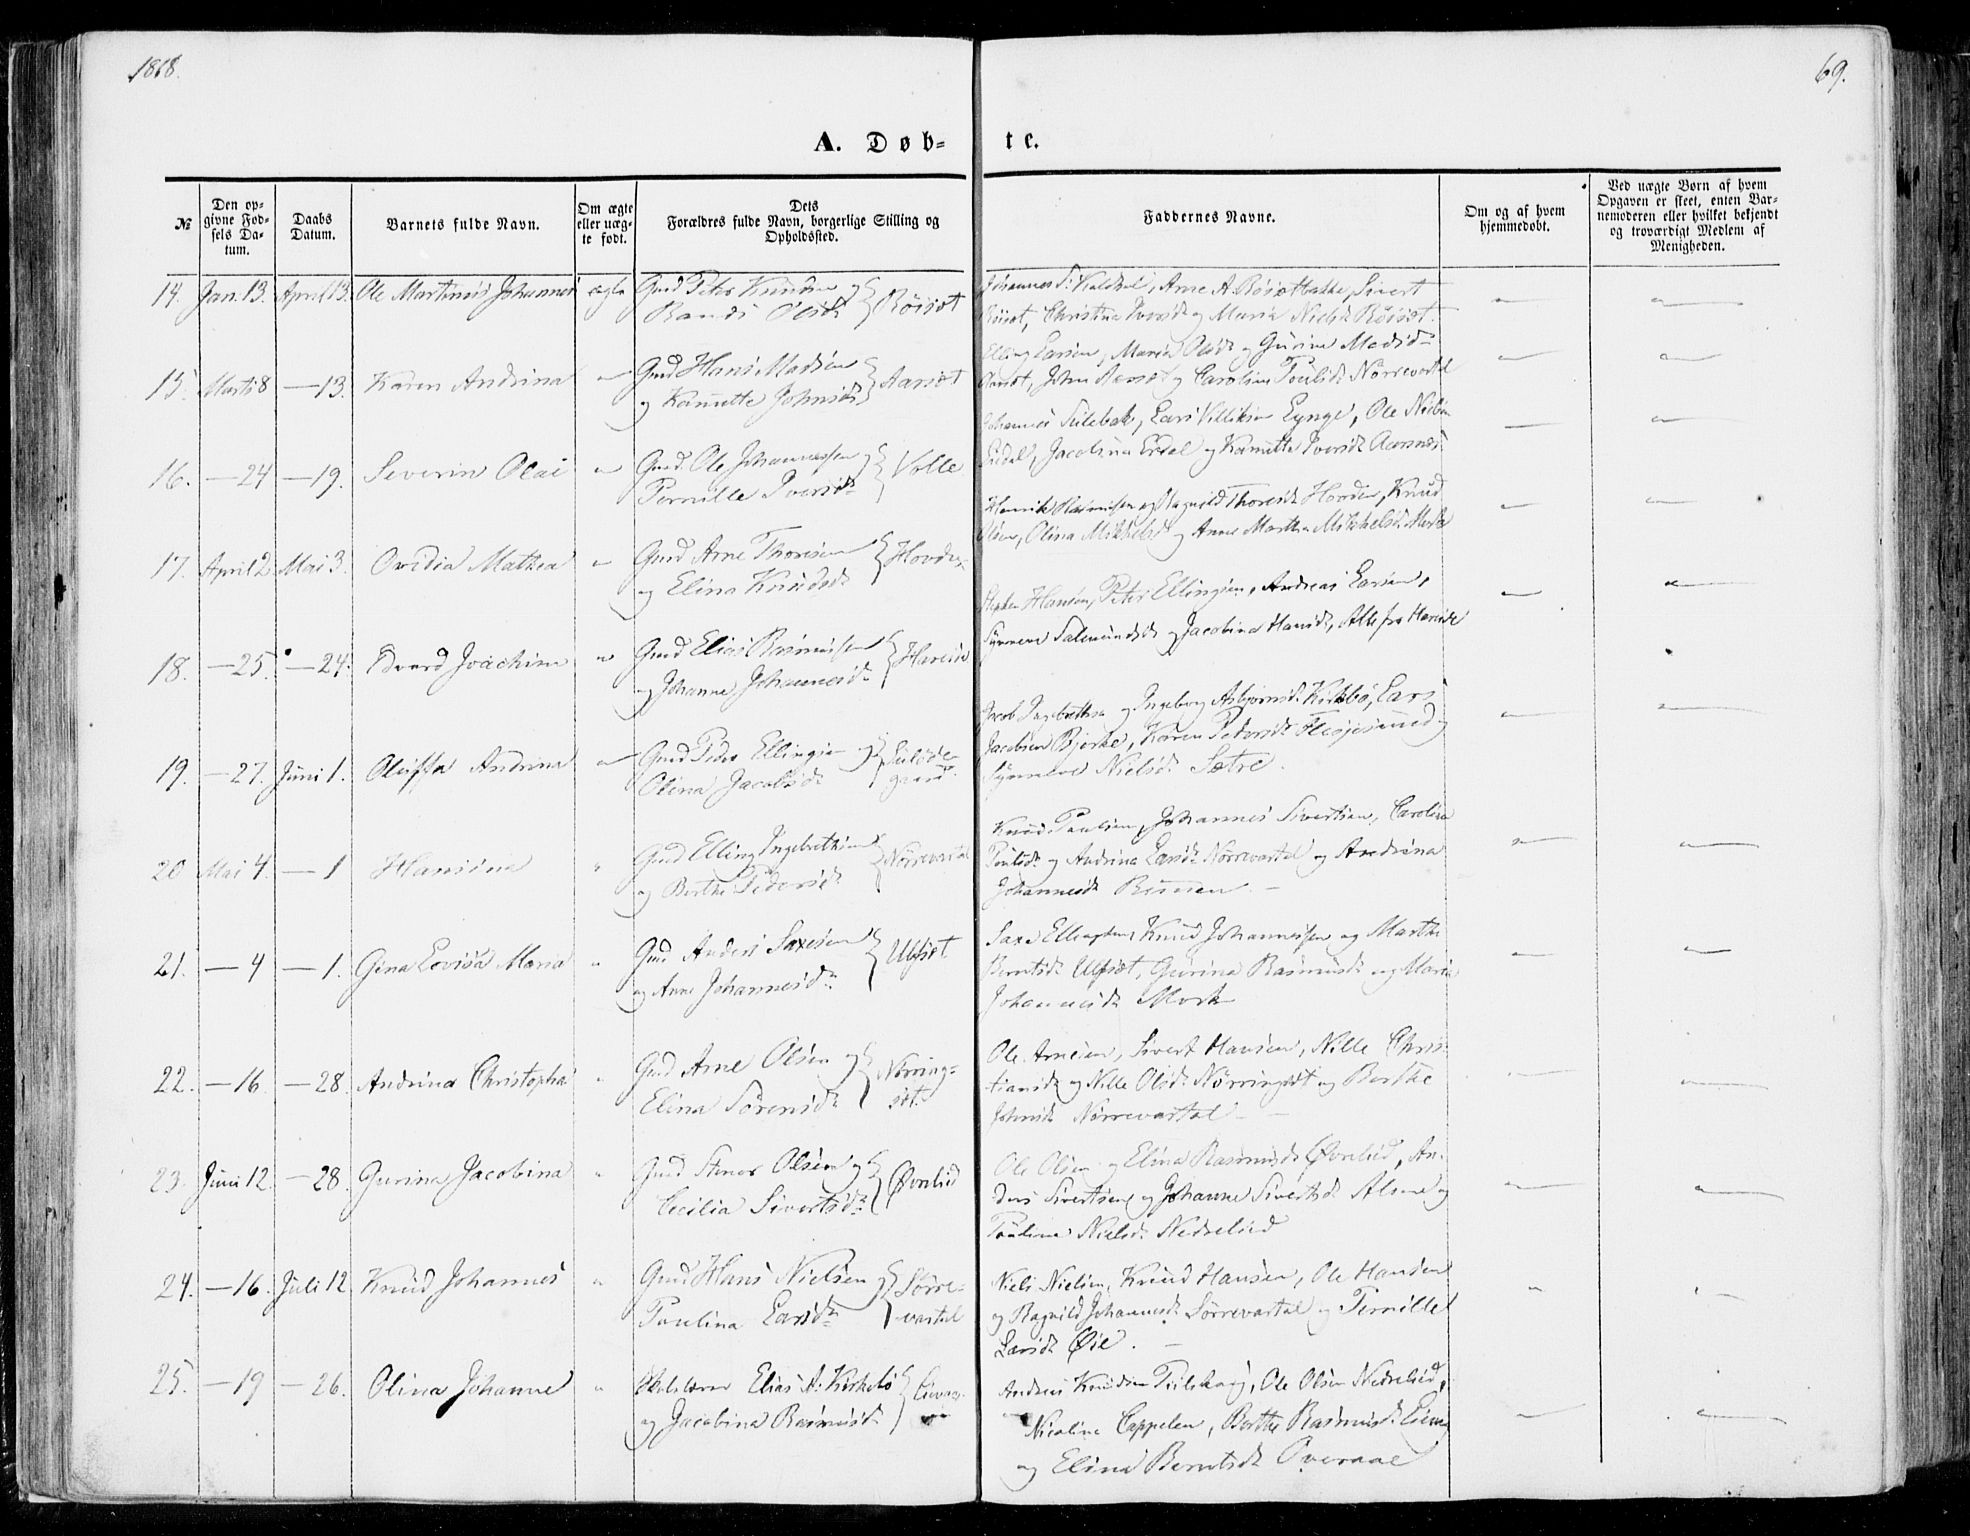 1868.
69.
A. Døb-
te.
№
Den opgivne Fødsels Datum.
Daabs Datum.
Barnets fulde Navn.
Om ægte eller uægte født.
Dets Forældres fulde Navn, borgerlige Stilling og Opholdssted.
Faddernes Navne.
Om og af hvem hjemmedøbt.
Ved uægte Børn af hvem Opgaven er skeet, enten Barnemoderen eller hvilket bekjendt og troværdigt Medlem af Menigheden.
14. Jan. 13. April 13. Ole Martinus Johannes ægte Gmd Peter Knudsen og
Olsdr Röisæt
Johannes S: Arne A. Sivert
Röisæt, Christina Iversdr og Maria Nielsdr Röisæt.
15. Marts 8 — 13. Karen Andrina — Gmd Hans Madsen
og Kanutte Johnsdr Aarsæt
Elling Larsen, Maria Olsdr og Gurine Madsdr
Aarsæt, John Aarsæt og Caroline Poulsdr Nörrevartdal
16. — 24 — 19. Severin Olai — Gmd. Ole Johannessen og
Pernille Iversdr Volle
Johannes Sulebak, Lars Villiksen Lynge, Ole Nielsen
Jacobina Erdal og Kanutte Iversdr Aarsnes
17. April 2 Mai 3. Ovidia Mathea — Gmd Arne Thoresen
og Elina Knudsdr Hovden
Henrik Rasmussen og Ragnild Thoresdr Hovden, Knud
Olsen, Olina Mikkelsdr og Anne Martha Mikkelsdr Mork
18. — 25. — 24. Edvard Joachim — Gmd Elias Rasmussen
og Johanne Johannesdr Hareide
Stephen Hansen, Peter Ellingsen, Andreas Larsen,
Synneve Salamundsdr og Jacobina Hansdr, Alle fra Hareide
19. — 27. Juni 1. Oluffa Andrina — Gmd Peder Ellingsen og
Olina Jacobsdr
Jacob Ingebrethsen og Ingeborg Asbjörnsdr Kirkbö, Lars
Jacobsen Bjerke, Karen Pedersdr og
Synneve Nielsdr Sætre.
20 Mai 4. — 1 Hansina " Gmd Elling Ingebrethsen
og Berthe Pedersdr Nörrevartdal
Knud Paulsen, Johannes Sivertsen, Carolina
Poulsdr og Andrina Larsdr Nörrevartdal og Andrina
Johannesdr
21. — 4 — 1. Gina Lovisa Maria " Gmd Anders Saxesen
og Anne Johannesdr Ulfsæt
Saxe Ellingsen, Knud Johannessen og Marthe
Berntsdr Ulfsæt, Gurina Rasmusdr og Maria
Johannesdr Mork
22. — 16. — 28. Andrina Christopha " Gmd Arne Olsen og
Elina Sörensdr Nörringsæt
Ole Arnesen, Sivert Hansen, Nille Chris-
tiansdr og Nille Olsdr Nörringsæt og Berthe
Johnsdr Nörrevartdal —
23. Juni 12. — 28. Gurina Jacobina " Gmd Stener Olsen og
Cicilia Sivertsdr Øvrelied
Ole Olsen og Elina Rasmusdr Øvrelied, An-
ders Sivertsen og Johanne Sivertsdr Alsne og
Pauline Nielsdr Nedrelied
24. — 16. Juli 12 Knud Johannes " Gmd Hans Nielsen og
Paulina Larsdr Sörre-
vartdal
Niels Nielsen, Knud Hansen, Ole Hansen
og Ragnild Johannesdr Sörrevartdal og Pernille
Larsdr Øie. —
25. — 19 — 26. Olina Johanne " Skolelærer Elias A: Kirkebö
og Jacobina Rasmusdr
Andreas Knudsen Ole Olsen Nedrelied,
Nicoline Cappelen, Berthe Rasmusdr
og Elina Berntsdr Overaae